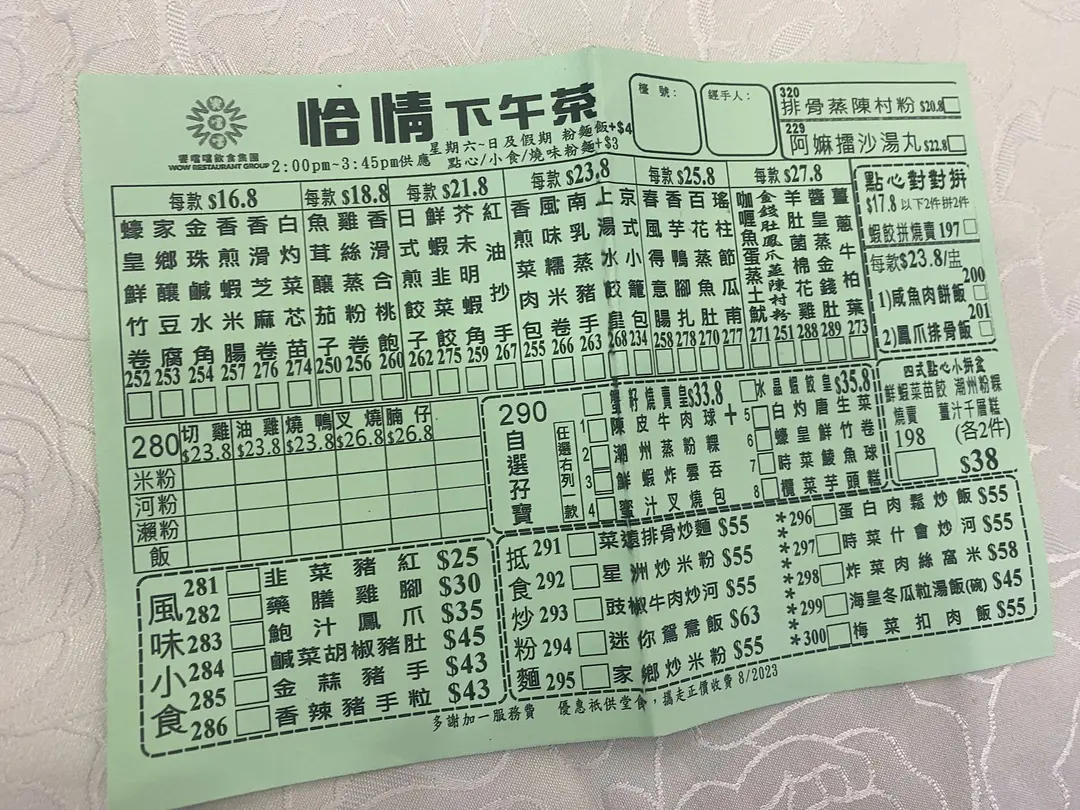 饗噹噹飲食集團
WOW RESTAURANT GROUP
恰情下午茶
2:00pm~3:45pm供應
星期六~日及假期 粉麵飯+$4
點心/小食/燒味粉麵+$3
檯號：
經手人：
320
排骨蒸陳村粉 $20.8
229
阿嫲擂沙湯丸 $22.8
每款 $16.8
蠔皇鮮竹卷 252
家鄉釀豆腐 253
金珠鹹水角 254
香煎蝦米腸 257
香滑芝麻卷 276
白灼菜芯苗 274
每款 $18.8
魚茸釀茄子 250
雞絲蒸粉卷 256
香滑合桃飽 260
每款 $21.8
日式煎餃子 262
鮮蝦韭菜餃 275
芥末明蝦角 259
紅油抄手 267
每款 $23.8
香煎菜肉包 255
風味糯米卷 266
南乳蒸豬手 263
上湯水餃皇 268
京式小籠包 234
每款 $25.8
春風得意腸 258
香芋鴨腳扎 278
百花蒸魚肚 270
瑤柱節瓜甫 277
每款 $27.8
咖喱魚蛋蒸土魷 271
金錢肚鳳爪蒸陳村粉 251
羊肚菌棉花雞 288
醬皇蒸金錢肚 289
薑蔥牛柏葉 273
點心對對拼
$17.8 以下2件拼2件
蝦餃拼燒賣 197
每款$23.8/盅
200
1)咸魚肉餅飯
201
2)鳳爪排骨飯
四式點心小拼盆
鮮蝦菜苗餃 潮州粉粿
燒賣 薑汁千層糕
198 (各2件)
$38
280 切雞 油雞 燒鴨 叉燒 腩仔
$23.8 $23.8 $23.8 $26.8 $26.8
米粉
河粉
瀨粉
飯
290
自選孖寶
任選右列一款
蟹籽燒賣皇$33.8
水晶蝦餃皇$35.8
+
1 陳皮牛肉球
2 潮州蒸粉粿
3 鮮蝦炸雲吞
4 蜜汁叉燒包
5 白灼唐生菜
6 蠔皇鮮竹卷
7 時菜鯪魚球
8 欖菜芋頭糕
風味小食
281 韭菜豬紅 $25
282 藥膳雞腳 $30
283 鮑汁鳳爪 $35
284 鹹菜胡椒豬肚 $45
285 金蒜豬手 $43
286 香辣豬手粒 $43
抵食炒粉麵
291 菜遠排骨炒麵 $55
292 星洲炒米粉 $55
293 豉椒牛肉炒河 $55
294 迷你鴛鴦飯 $63
295 家鄉炒米粉 $55
*296 蛋白肉鬆炒飯 $55
*297 時菜什會炒河 $55
*298 炸菜肉絲窩米 $58
*299 海皇冬瓜粒湯飯(碗) $45
*300 梅菜扣肉飯 $55
多謝加一服務費 優惠祇供堂食，攜走正價收費 8/2023